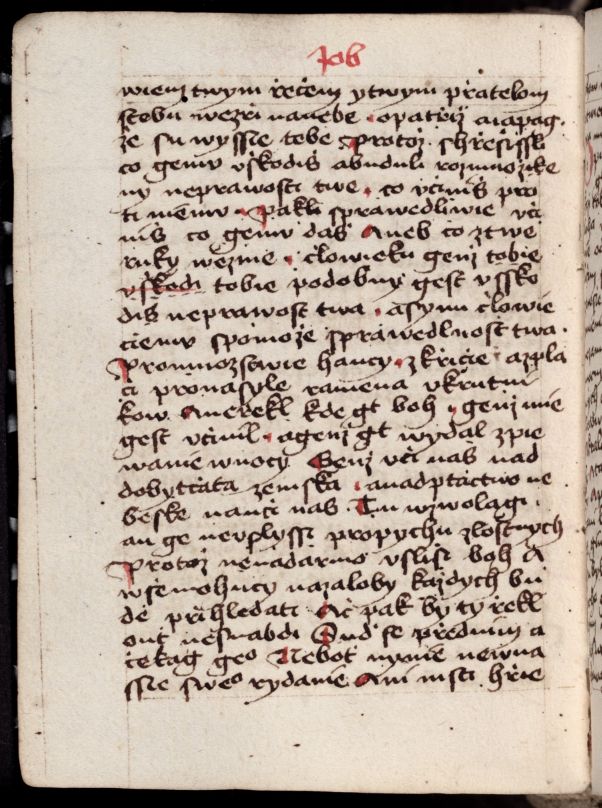 Job
wiem twym řečem y twym přatelom
stebu wezři nanebe · opatřiž aiapag·
že su wyssie tebe Protož shřessissli
co gemu vsskodiš abuduli rozmnožene
ny neprawosti twe · co včiniš pro
ti niemu · Pakli sprawedliwie vči
niš co gemu daš Aneb co ztwe
ruky wezme · člowieku genž tobie
vsskodi tobie podobny gest vssko
diš neprawost twa · asynu člowie
čiemu spomože sprawedlnost twa ·
Promnozstwie hancy · zkřičie · azpla
či pronasyle ramena vkrutni
kow Aneřekl kde gt boh · genž mie
gest včinil · agenž gt wydal zpie
wanie wnocy Genž vči nas nad
dobytčata zemska · anadptactwo ne
beske nauči nas Tu wzwolagi ·
an ge nevslyssi propychu zlostnych
Protož nenadarmo vslissi boh A
wssemohucy nazaloby každych bu
de přihledati Ač pak by ty řekl
ont nesnabdi Sud se přednim a
čekag geo Nebot nynie newna
ssie sweo rydanie Ani msti hřie